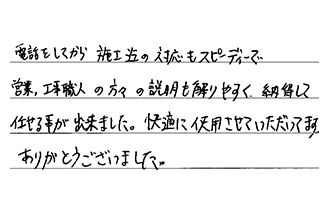 電話をしてから 施工迄の対応もスピーディーで、
営業、工事職人の方々の説明も解りやすく、納得して
任せる事が出来ました。快適に使用させていただいてます
ありがとうございました。